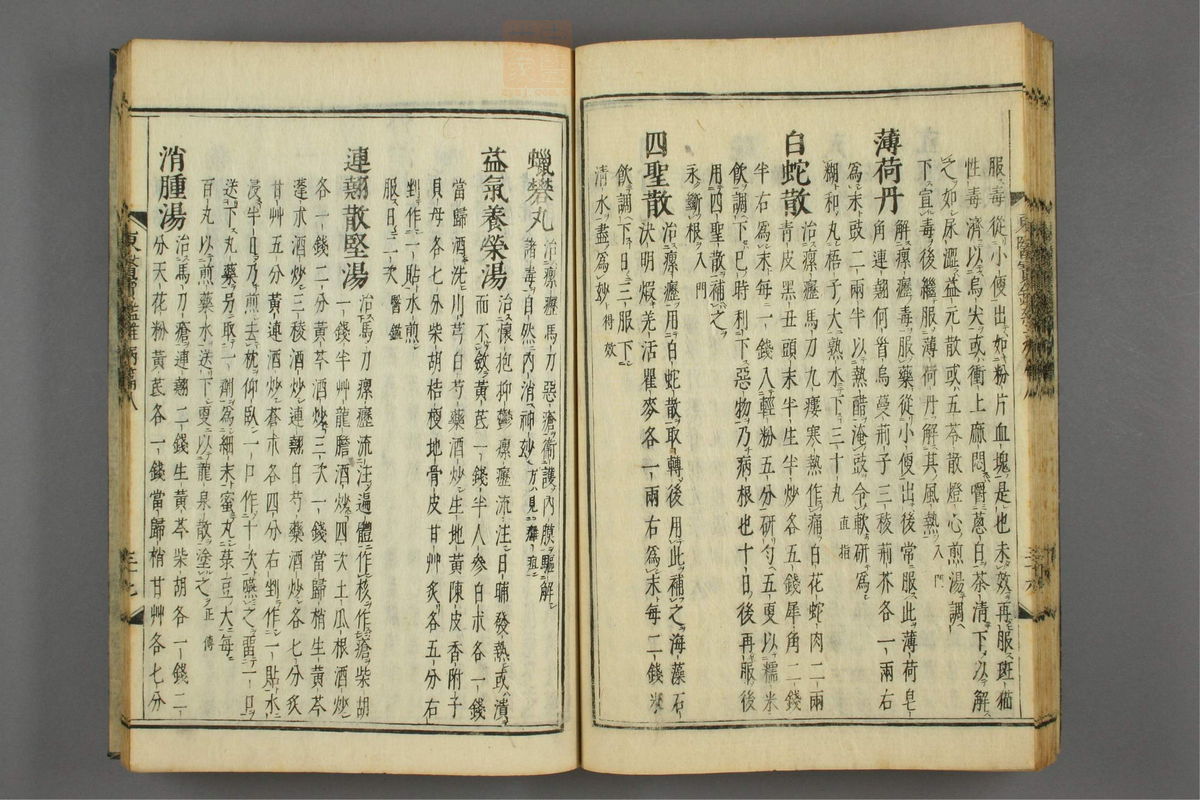 服毒從小便出如粉片血塊是也未效再服斑猫
性毒濟以烏尖或衝上麻悶嚼葱白茶清下以解
之如尿澁益元散或五苓散燈心煎湯調
下宣毒後繼服薄荷丹解其風熱 入門
薄荷丹 解瘰癧毒服藥從小便出後常服此薄荷皂
角連翹何首烏蔓荊子三稜荊芥各一兩右
爲末豉二兩半以熱醋淹豉令軟研爲
糊和丸梧子大熟水下三十丸 直指
白蛇散 治瘰癧馬刀九瘻寒熱作痛白花蛇肉二兩
青皮黑丑頭末半生半炒各五錢犀角二錢
半右爲末每一錢入輕粉五分研匀五更以糯米
飲調下巳時利下惡物乃病根也十日後再服後
用四聖散補之
永斷根 入門
四聖散 治瘰癧用白蛇散取轉後用此補之海藻石
決明煆羌活瞿麥各一兩右爲末每二錢米
飲調下日三服下
清水盡爲妙 得效
蠟礬丸 治瘰癧馬刀惡瘡衛護內膜驅解
諸毒自然內消神妙 方見癰疽
益氣養榮湯 治懷抱抑鬱瘰癧流注日晡發熱或潰
而不斂黃芪一錢半人參白朮各一錢
當歸酒洗川芎白芍藥酒炒生地黃陳皮香附子
貝母各七分柴胡桔梗地骨皮甘艸炙各五分右
剉作一貼水煎
服日二三次 醫鑑
連翹散堅湯 治馬刀瘰癧流注遍體作核作瘡柴胡
一錢半艸龍膽酒炒四次土瓜根酒炒
各一錢二分黃芩酒炒三次一錢當歸梢生黃芩
蓬朮酒炒三稜酒炒連翹白芍藥酒炒各七分炙
甘艸五分黃連酒炒蒼朮各四分右剉作一貼水
浸半日乃煎去枕仰臥一口作十次嚥之留一口
送下丸藥另取一劑爲細末蜜丸菉豆大每
百丸以煎藥水送下更以龍泉散塗之 正傳
消腫湯 治馬刀瘡連翹二錢生黃芩柴胡各一錢二
分天花粉黃芪各一錢當歸梢甘艸各七分
東醫寶鑑雜病篇八